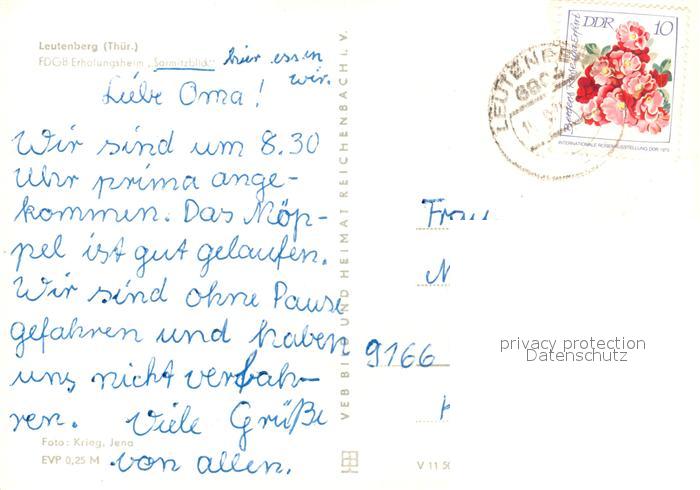 Leutenberg (Thür.)
FDGB Erholungsheim „Sormitzblick"
hier essen
wir.
Liebe Oma!
Wir sind um 8.30
Uhr prima ange-
kommen. Das Möp-
pel ist gut gelaufen.
Wir sind ohne Pause
gefahren und haben
uns nicht verfah-
ren. Viele Grüße
von allen.
Foto: Krieg, Jena
EVP 0,25 M
VEB BILD UND HEIMAT REICHENBACH I. V.
V 11 50
DDR 10
INTERNATIONALE ROSENAUSSTELLUNG DDR 1972
LEUTENBERG
Frau
9166
privacy protection
Datenschutz